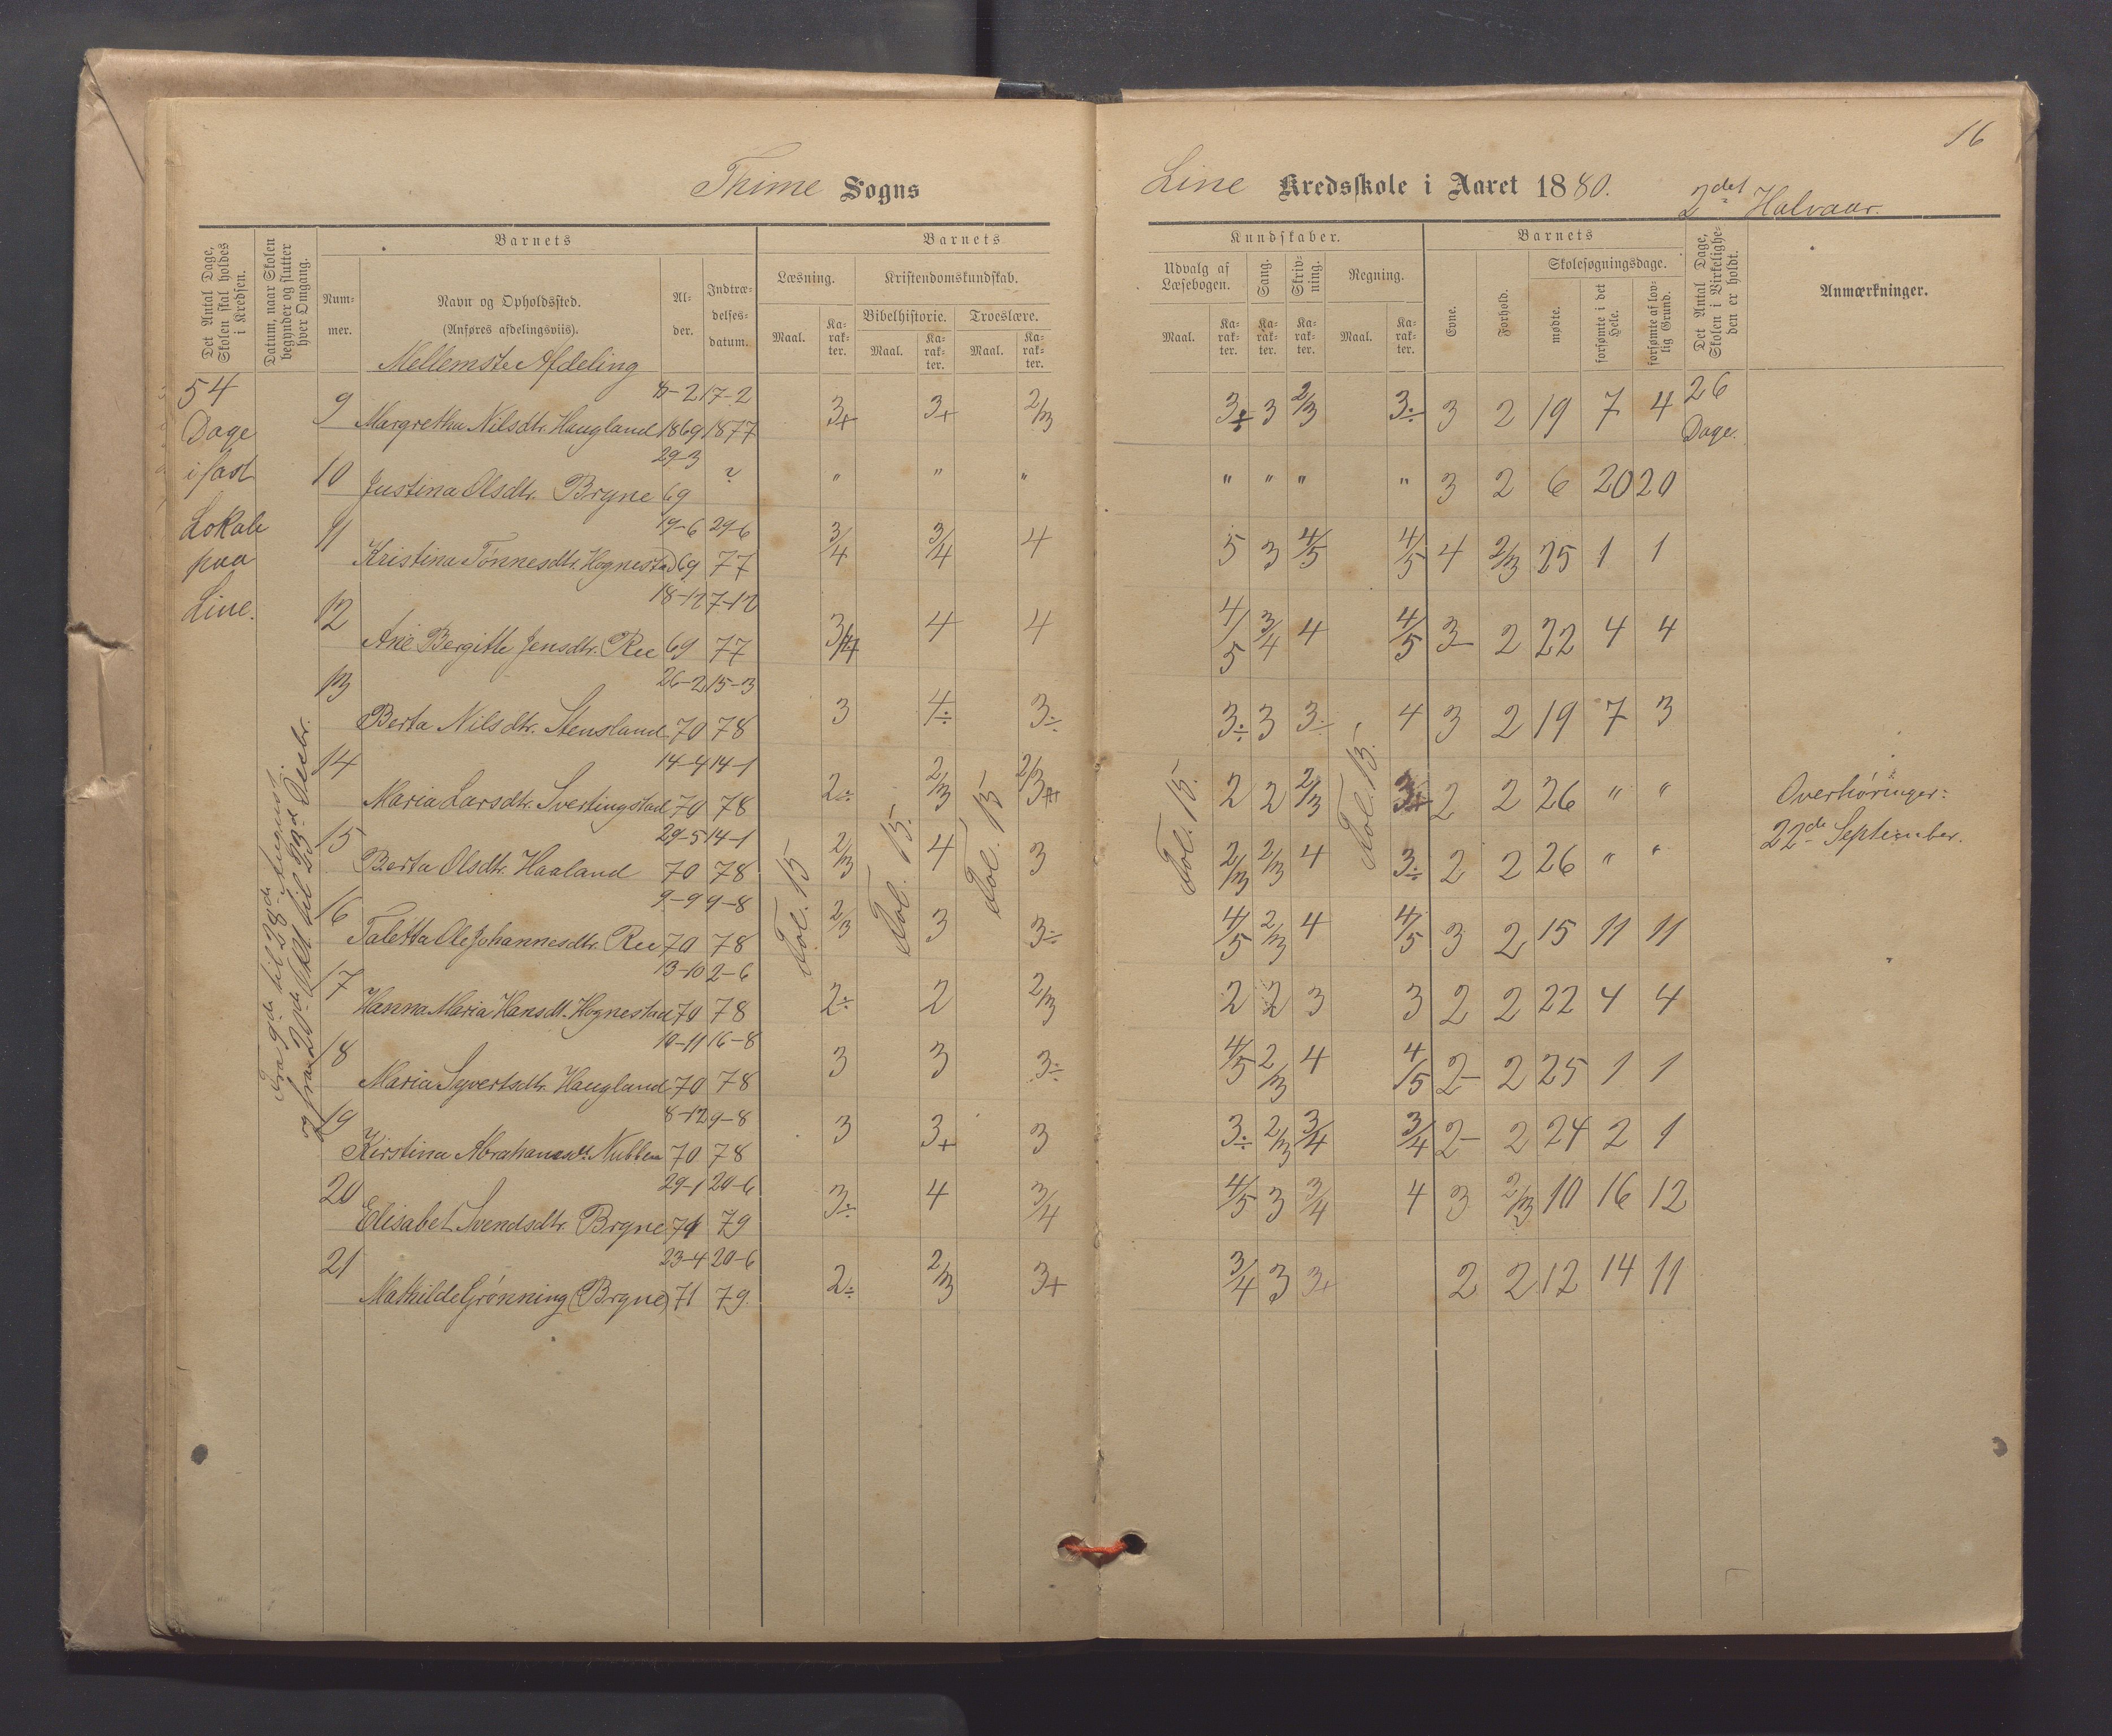 16
Thime Sogns
Line Kredsskole i Aaret 1880. 2det Halvaar.
Det Antal Dage, Skolen skal holdes i Kredsen.
Datum, naar Skolen begynder og slutter hver Omgang.
Barnets
Nummer.
Navn og Opholdssted.
(Anføres afdelingsviis).
Mellemste Afdeling
Alder.
Indtrædelsesdatum.
Barnets
Læsning.
Maal.
Karakter.
Kristendomskundskab.
Bibelhistorie.
Maal.
Karakter.
Troeslære.
Maal.
Karakter.
Kundskaber.
Udvalg af Læsebogen.
Maal.
Karakter.
Sang.
Karakter.
Skrivning.
Karakter.
Regning.
Maal.
Karakter.
Barnets
Evne.
Forhold.
Skolesøgningsdage.
mødte.
forsømte i det Hele.
forsømte af lovlig Grund.
Det Antal Dage, Skolen i Virkeligheden er holdt.
Anmærkninger.
54
Dage
i fast
Lokale
paa
Line.
Fra 9de til 28de August.
og fra 20de Oktl. til 23d Decbr.
8-2 17-2
9 Margretha Nilsdtr. Haugland 1869 1877 3+ 3+ 2/3 3+ 3 2/3 3÷ 3 2 19 7 4 26 Dage.
29-3 ?
10 Justina Olsdtr. Bryne 69 " " " " " " " 3 2 6 20 20
19-6 29-6
11 Kristina Tønnesdtr. Hognestad 69 77 3/4 3/4 4 5 3 4/5 4/5 4 2/3 25 1 1
18-12 7-12
12 Ane Bergitte Jensdtr. Ree 69 77 3/4 4 4 4/5 3/4 4 4/5 3- 2 22 4 4
26-2 15-3
13 Berta Nilsdtr. Stensland 70 78 3 4÷ 3÷ 3÷ 3 3÷ 4 3 2 19 7 3
14-4 14-1
14 Maria Larsdtr. Svertingstad 70 78 2÷ 2/3 2/3 2 2 2/3 3+ 2 2 26 " "
29-5 14-1
15 Berta Olsdtr. Haaland 70 78 2/3 4 3 2/3 2/3 4 3÷ 2 2 26 " "
9-9 9-8
16 Taletta Ole Johannesdtr. Ree 70 78 2/3 3 3÷ 4/5 2/3 4 4/5 3 2 15 11 11
13-10 2-6
17 Hanna Maria Hansdt. Hognestad 70 78 2÷ 2 2/3 2 2 3 3 2 2 22 4 4
10-11 16-8
18 Maria Syvertsdtr. Haugland 70 78 3 3 3÷ 4/5 2/3 4 4/5 2- 2 25 1 1
8-12 9-8
19 Kirstina Abrahamsdt. Nubben 70 78 3 3+ 3 3÷ 2/3 3/4 3/4 2- 2 24 2 1
29-1 20-6
20 Elisabet Svendsdtr. Bryne 71 79 3÷ 4 3/4 4/5 3 3/4 4 3 2/3 10 16 12
23-4 20-6
21 Mathilde Grønning (Bryne) 71 79. 2÷ 2/3 3+ 3/4 3 3+ 2 2 12 14 11
Fol. 15
Fol. 15.
Fol. 15
Fol. 15.
Fol. 15.
Overhøringer:
22de September.